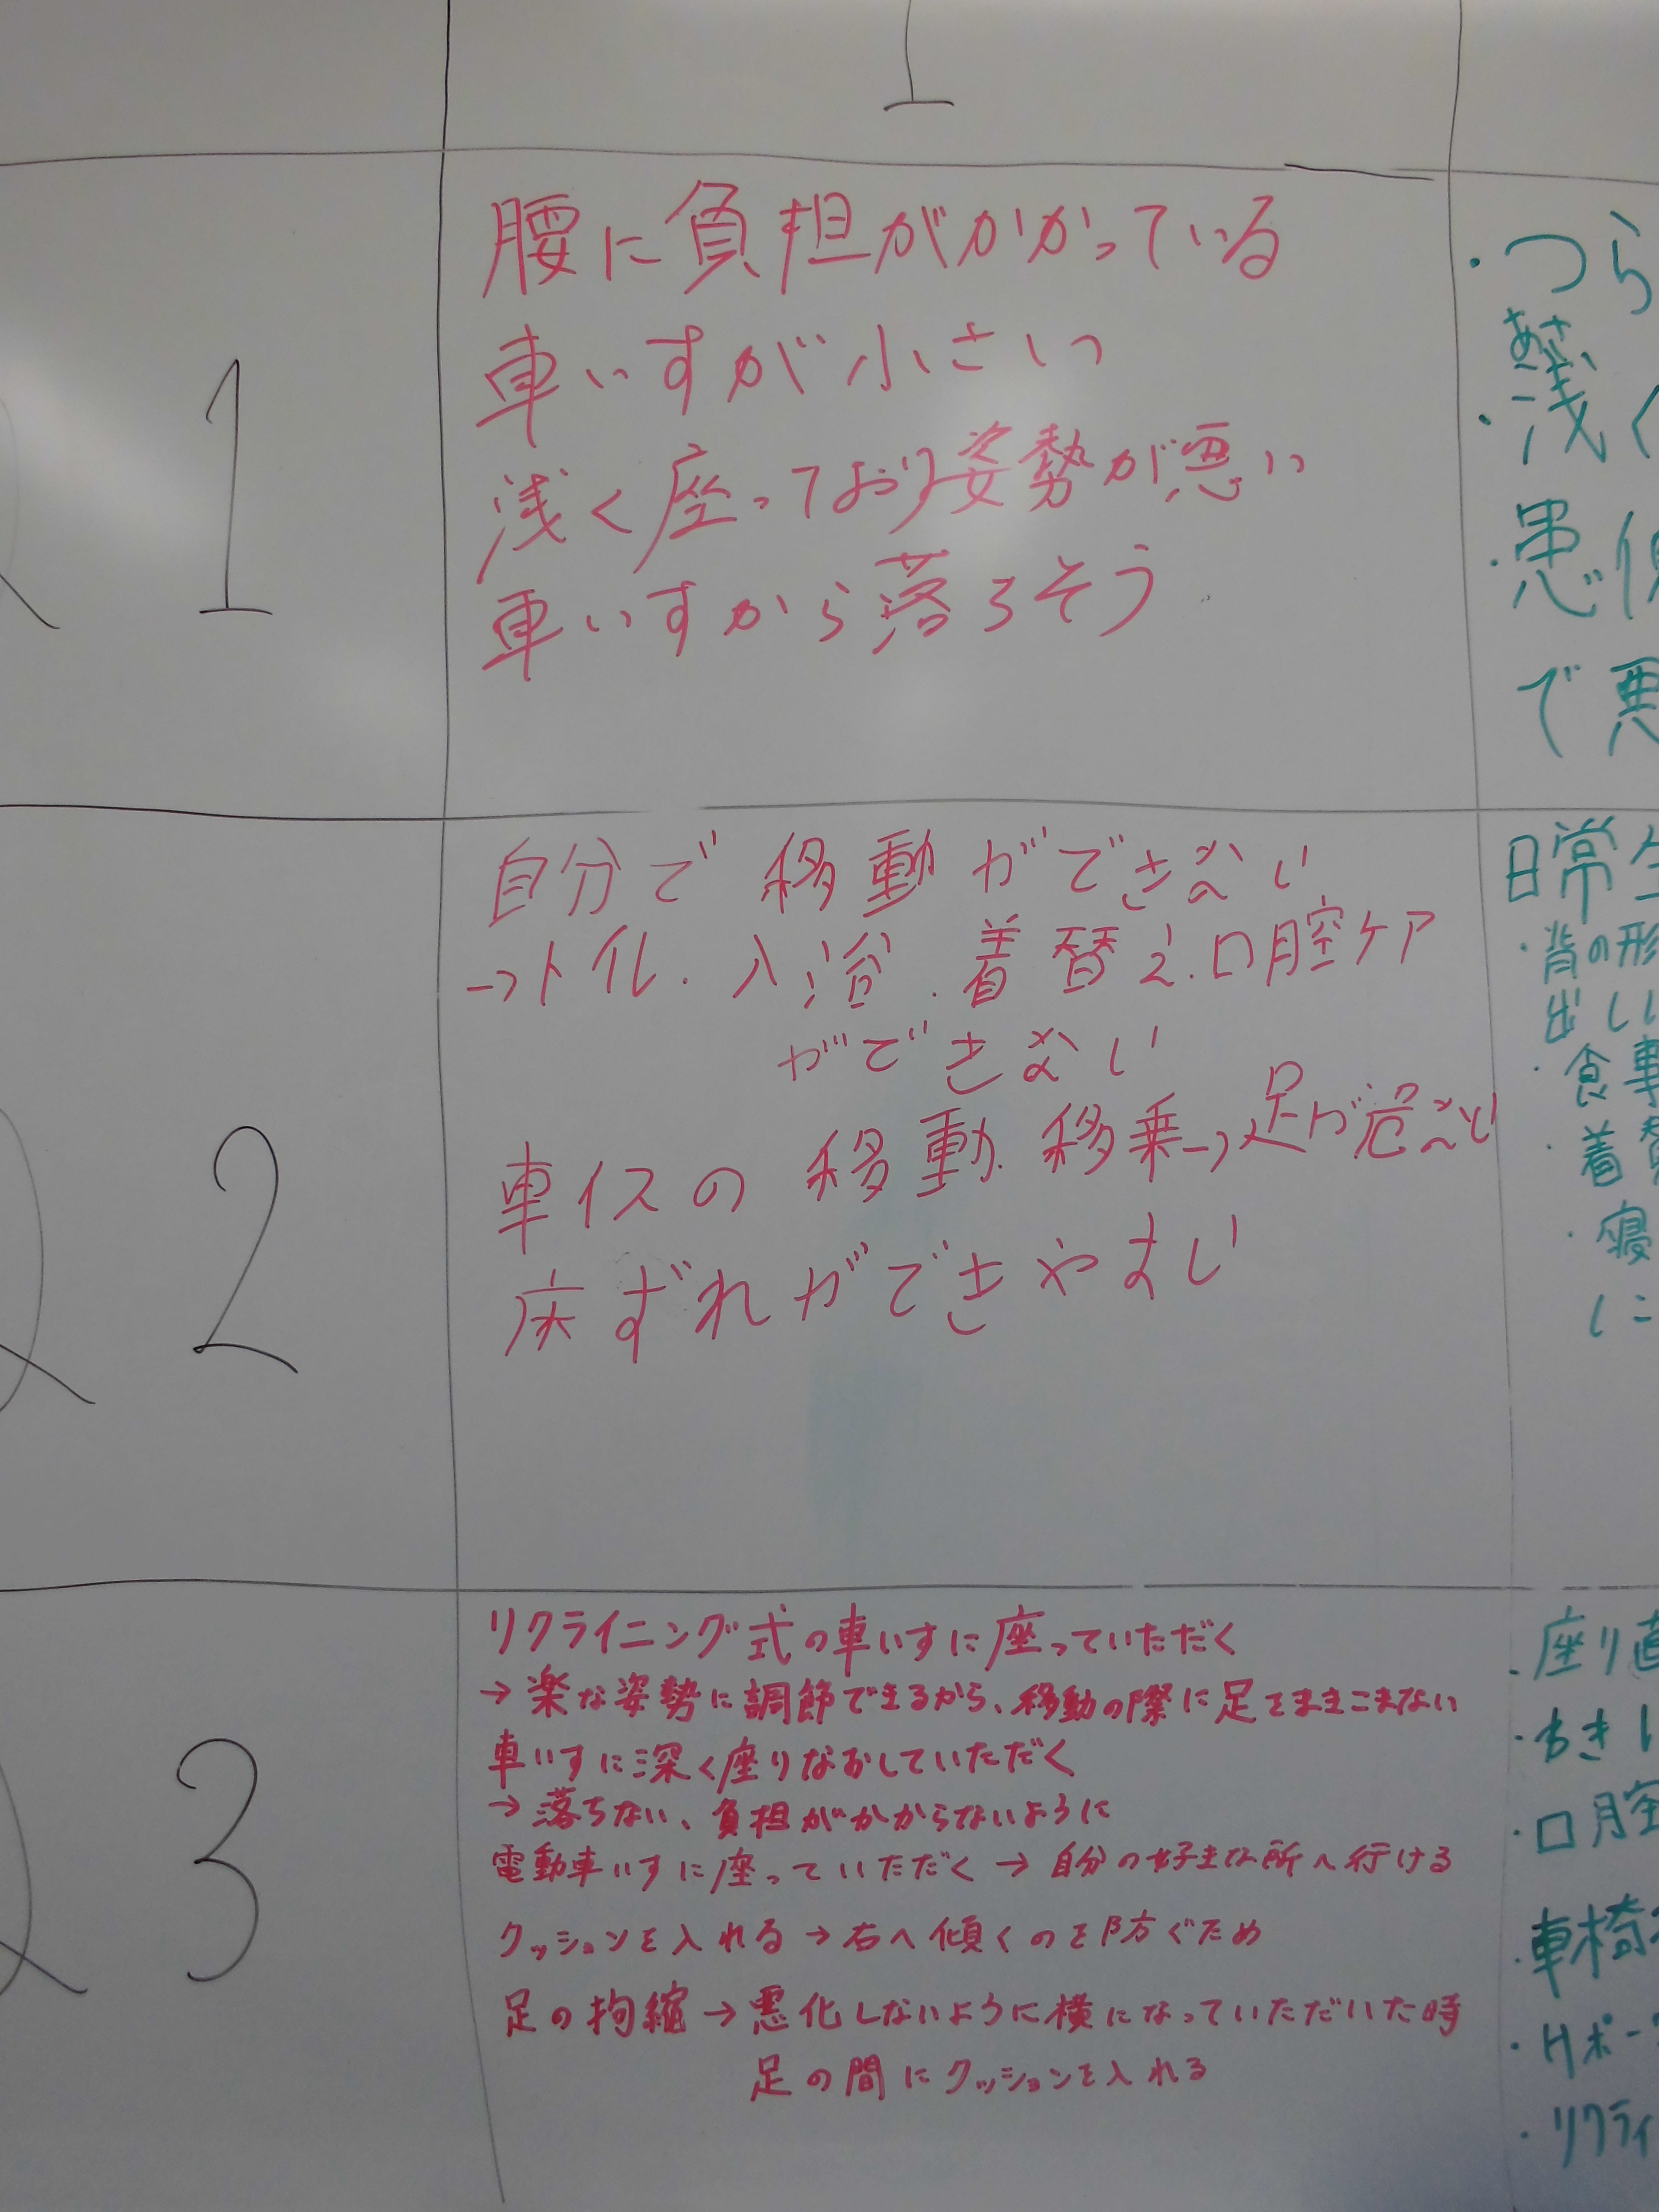 1
Q1
腰に負担がかかっている
車いすが小さい
浅く座っており姿勢が悪い
車いすから落ろそう
・つら
あさ
・浅く
・悪
で悪
Q2
自分で移動ができない
→トイレ.入浴.着替え.口腔ケア
ができない
車イスの移動.移乗→足が危ない
床ずれができやすい
日常生
・背の形
出しい
・食事
・着替
・寝
に
Q3
リクライニング式の車いすに座っていただく
→楽な姿勢に調節できるから、移動の際に足をまきこまない
車いすに深く座りなおしていただく
→落ちない、負担がかからないように
電動車いすに座っていただく→自分の好きな所へ行ける
クッションを入れる→右へ傾くのを防ぐため
足の拘縮→悪化しないように横になっていただいた時
足の間にクッションを入れる
・座り直
・口腔
・車椅
・リクライ